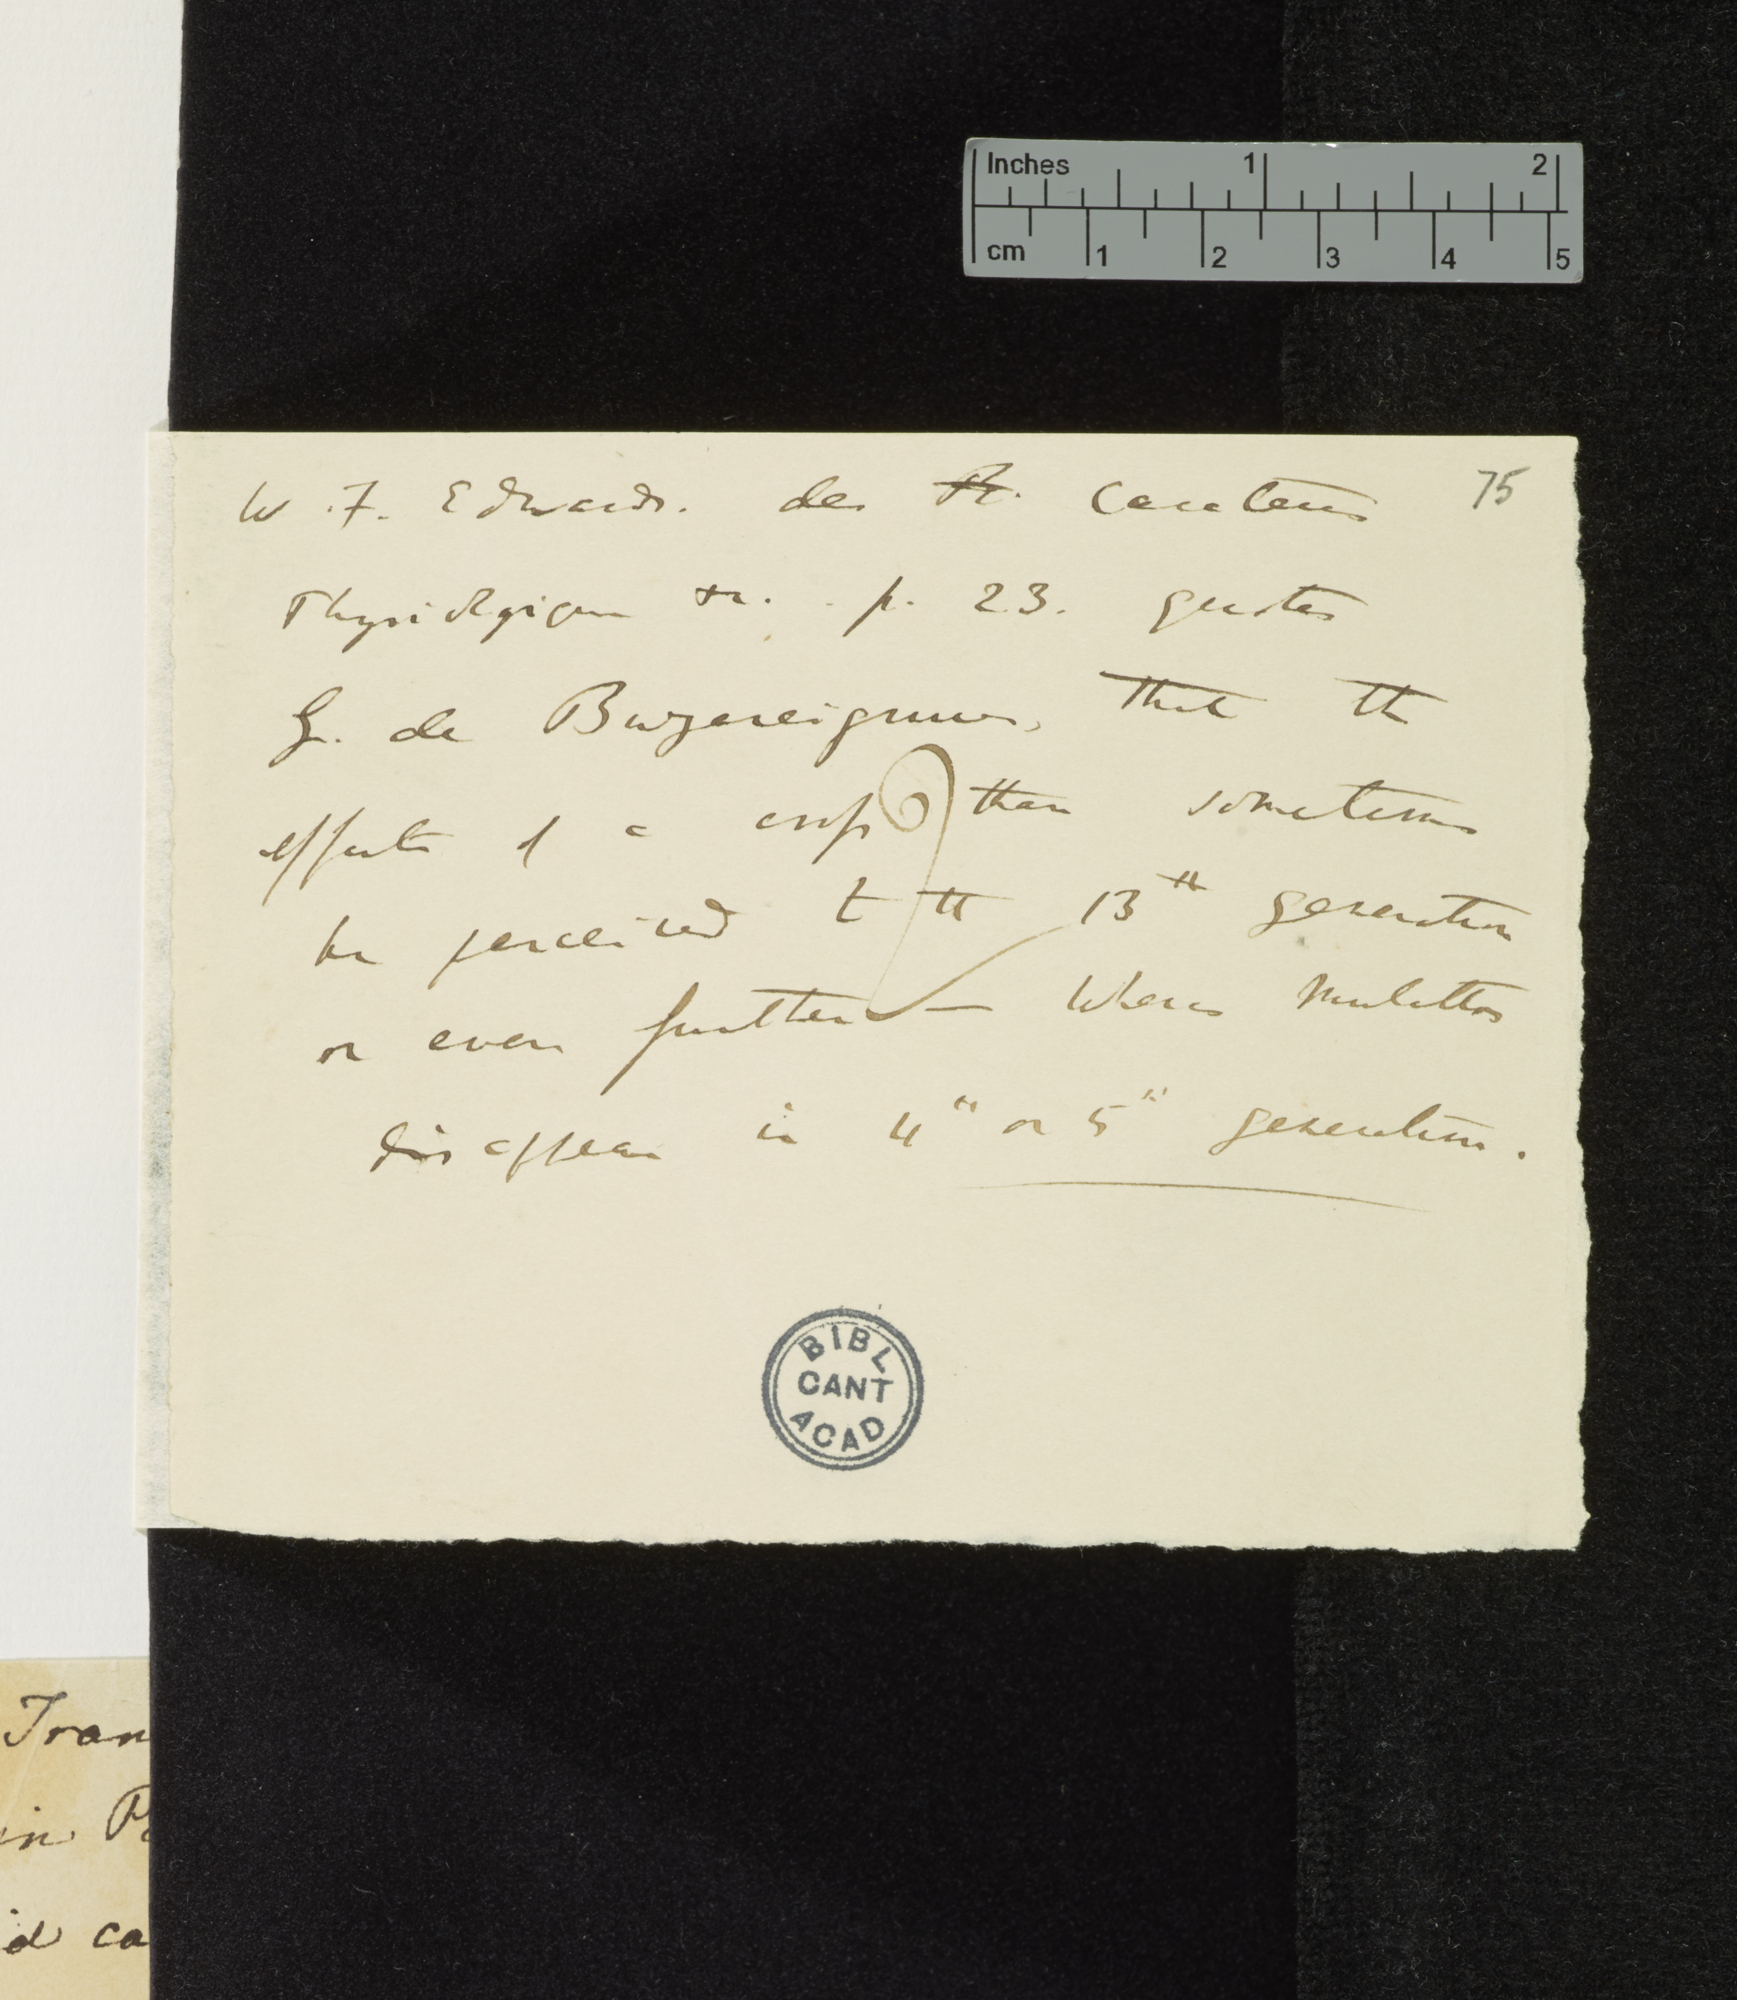 Inches 1 2
cm 1 2 3 4 5
75
W. F. Edwards. des R. Caracteres
Physiologiques &c. p. 23. quotes
G. de Buzareignues, that the
effects of a cross then sometimes
be perceived to the 13th generation
or even further — Whereas Mulattos
disappear in 4th or 5th generation.
BIBL
CANT
ACAD
Tran
in Po
id ca